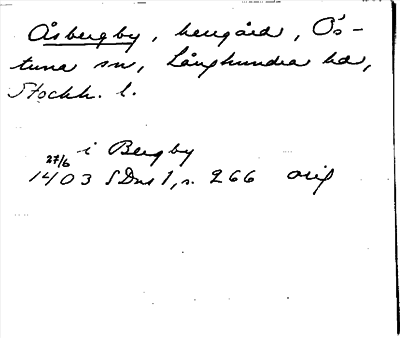 Åsbergby, herrgård, Ös-
tuna sn, Långhundra hd,
Stockh. l.
i Bergby
27/6
1403 SDns 1, s. 266 orig